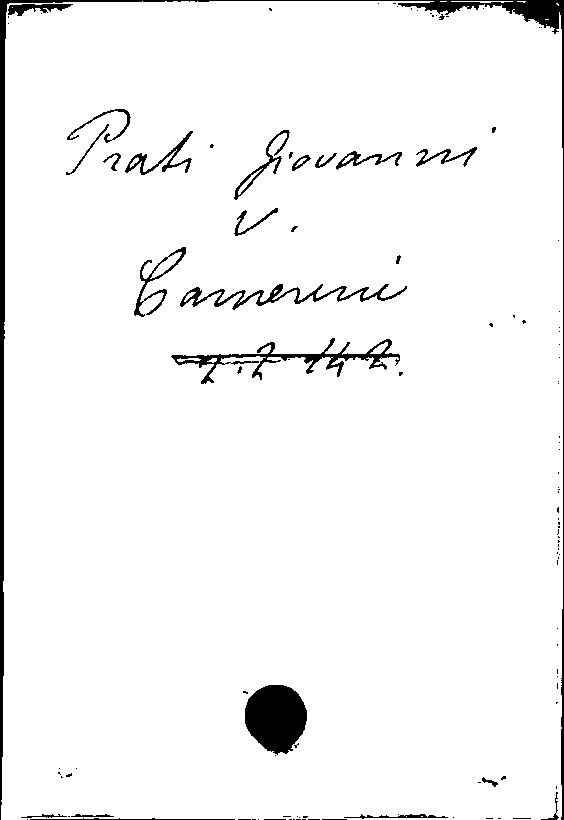 Prati Giovanni
v.
Camerini